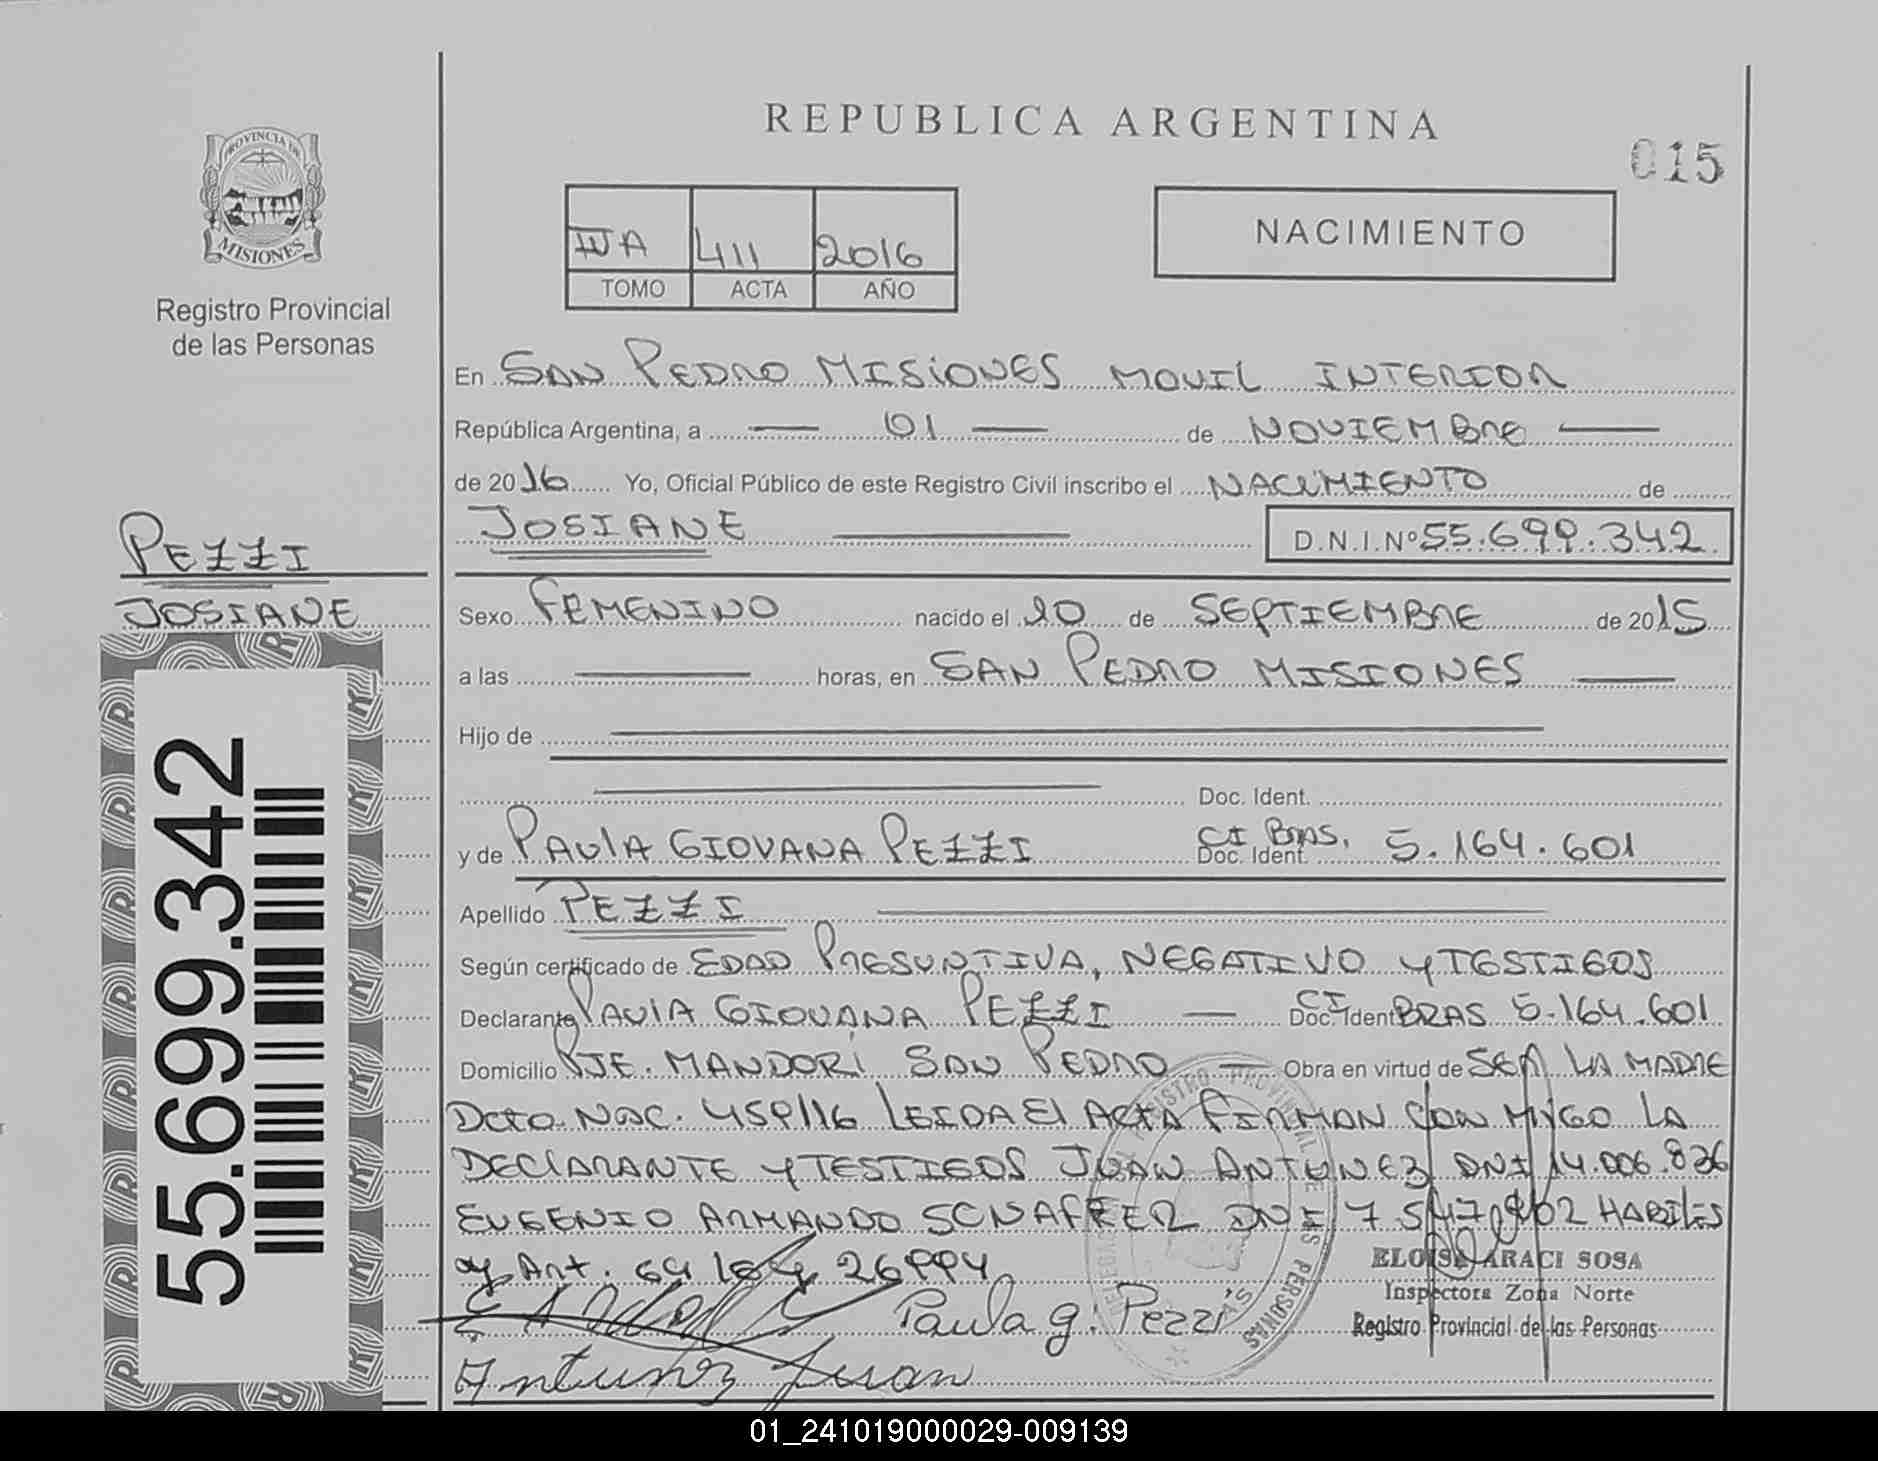 REPUBLICA ARGENTINA
015
PROVINCIA DE
MISIONES
Registro Provincial
de las Personas
NACIMIENTO
411 2016
TOMO ACTA AÑO
En SAN PEDRO MISIONES MOVIL INTERIOR
República Argentina, a 01 de NOVIEMBRE
de 2016 Yo, Oficial Público de este Registro Civil inscribo el NACIMIENTO de
JOSIANE D.N.I.Nº 55.699.342
PEZZI
JOSIANE
55.699.342
Sexo FEMENINO nacido el 20 de SEPTIEMBRE de 2015
a las horas, en SAN PEDRO MISIONES
Hijo de
Doc. Ident.
y de PAULA GIOVANA PEZZI Doc. Ident. CI BRAS. 5.164.601
Apellido PEZZI
Según certificado de EDAD PRESUNTIVA, NEGATIVO y TESTIGOS
Declarante PAULA GIOVANA PEZZI Doc. Ident CI BRAS 5.164.601
Domicilio PJE. MANDORÍ SAN PEDRO Obra en virtud de SER LA MADRE
Dcto NAC. 459/16 LEIDA El ACTA FIRMAN CON MIGO LA
DECLARANTE y TESTIGOS JUAN ANTUNEZ DNI 14.006.836
EUGENIO ARMANDO DNI HABILES
Art. 64 ley 26994
ELOISA ARACI SOSA
Inspectora Zona Norte
Registro Provincial de las Personas
Paula g. Pezzi
Antunez Juan
01_241019000029-009139